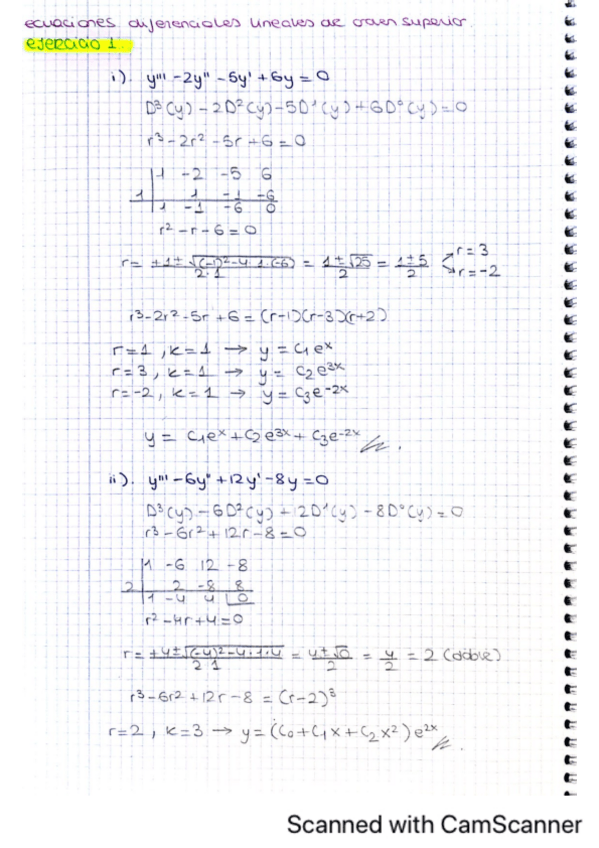 ecuaciones diferenciales lineales de orden superior.
ejercicio 1.
i). y''' - 2y'' - 5y' + 6y = 0
D³(y) - 2D²(y) - 5D¹(y) + 6D⁰(y) = 0
r³ - 2r² - 5r + 6 = 0
1 -2 -5 6
1 1 -1 -6
1 -1 -6 0
r² - r - 6 = 0
r = +1 ± √(-1)² - 4·1·(-6) / 2·1 = 1 ± √25 / 2 = 1 ± 5 / 2 r = 3
r = -2
r³ - 2r² - 5r + 6 = (r-1)(r-3)(r+2)
r = 1, k = 1 → y = C₁eˣ
r = 3, k = 1 → y = C₂e³ˣ
r = -2, k = 1 → y = C₃e⁻²ˣ
y = C₁eˣ + C₂e³ˣ + C₃e⁻²ˣ
ii). y''' - 6y'' + 12y' - 8y = 0
D³(y) - 6D²(y) + 12D¹(y) - 8D⁰(y) = 0
r³ - 6r² + 12r - 8 = 0
1 -6 12 -8
2 2 -8 8
1 -4 4 0
r² - 4r + 4 = 0
r = +4 ± √(-4)² - 4·1·4 / 2·1 = 4 ± √0 / 2 = 4/2 = 2 (doble)
r³ - 6r² + 12r - 8 = (r-2)³
r = 2, k = 3 → y = (C₀ + C₁x + C₂x²)e²ˣ
Scanned with CamScanner